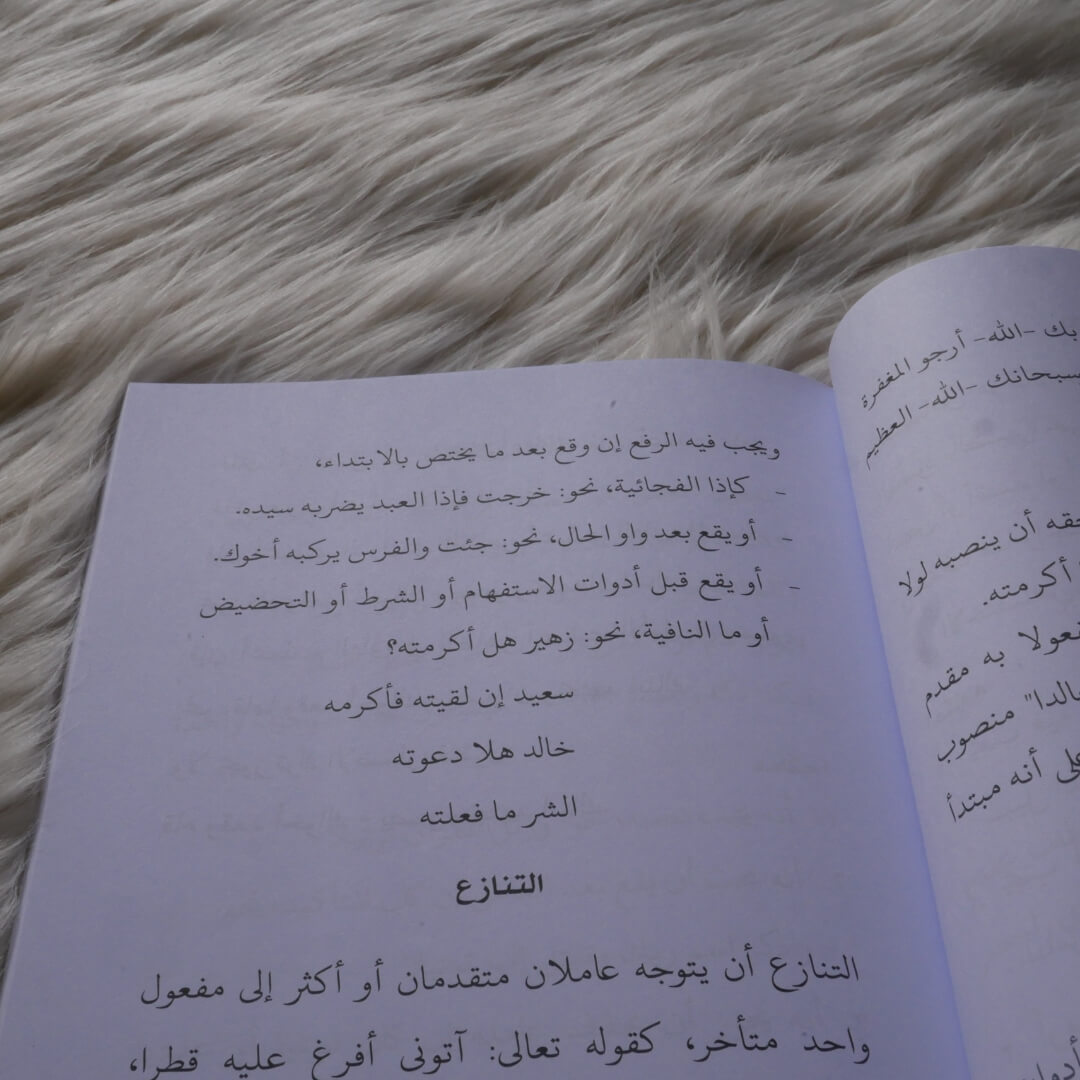 بك -الله- أرجو المغفرة
سبحانك -الله- العظيم
أن ينصبه لولا
أكرمته.
به مقدم
منصوب
أنه مبتدأ
ويجب فيه الرفع إن وقع بعد ما يختص بالابتداء،
- كإذا الفجائية، نحو: خرجت فإذا العبد يضربه سيده.
- أو يقع بعد واو الحال، نحو: جئت والفرس يركبه أخوك.
- أو يقع قبل أدوات الاستفهام أو الشرط أو التحضيض
أو ما النافية، نحو: زهير هل أكرمته؟
سعيد إن لقيته فأكرمه
خالد هلا دعوته
الشر ما فعلته
التنازع
التنازع أن يتوجه عاملان متقدمان أو أكثر إلى مفعول
واحد متأخر، كقوله تعالى: آتونى أفرغ عليه قطرا،